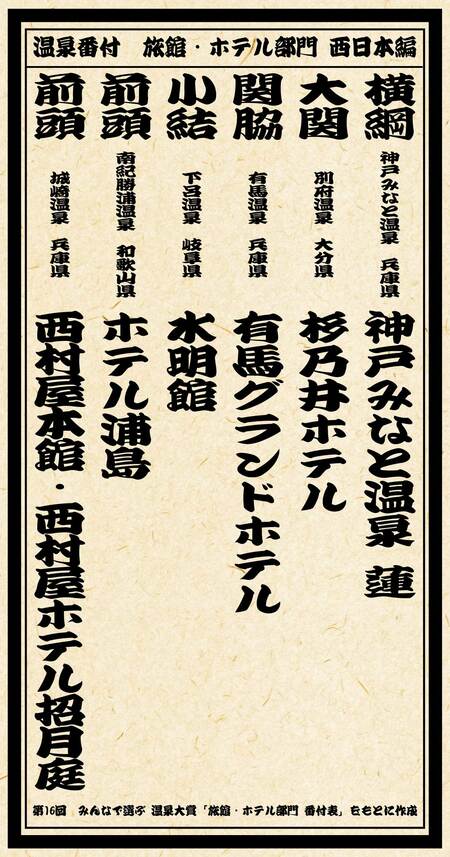 温泉番付　旅館・ホテル部門　西日本編
横綱　神戸みなと温泉　兵庫県　神戸みなと温泉　蓮
大関　別府温泉　大分県　杉乃井ホテル
関脇　有馬温泉　兵庫県　有馬グランドホテル
小結　下呂温泉　岐阜県　水明館
前頭　南紀勝浦温泉　和歌山県　ホテル浦島
前頭　城崎温泉　兵庫県　西村屋本館・西村屋ホテル招月庭
第16回　みんなで選ぶ 温泉大賞「旅館・ホテル部門 番付表」をもとに作成